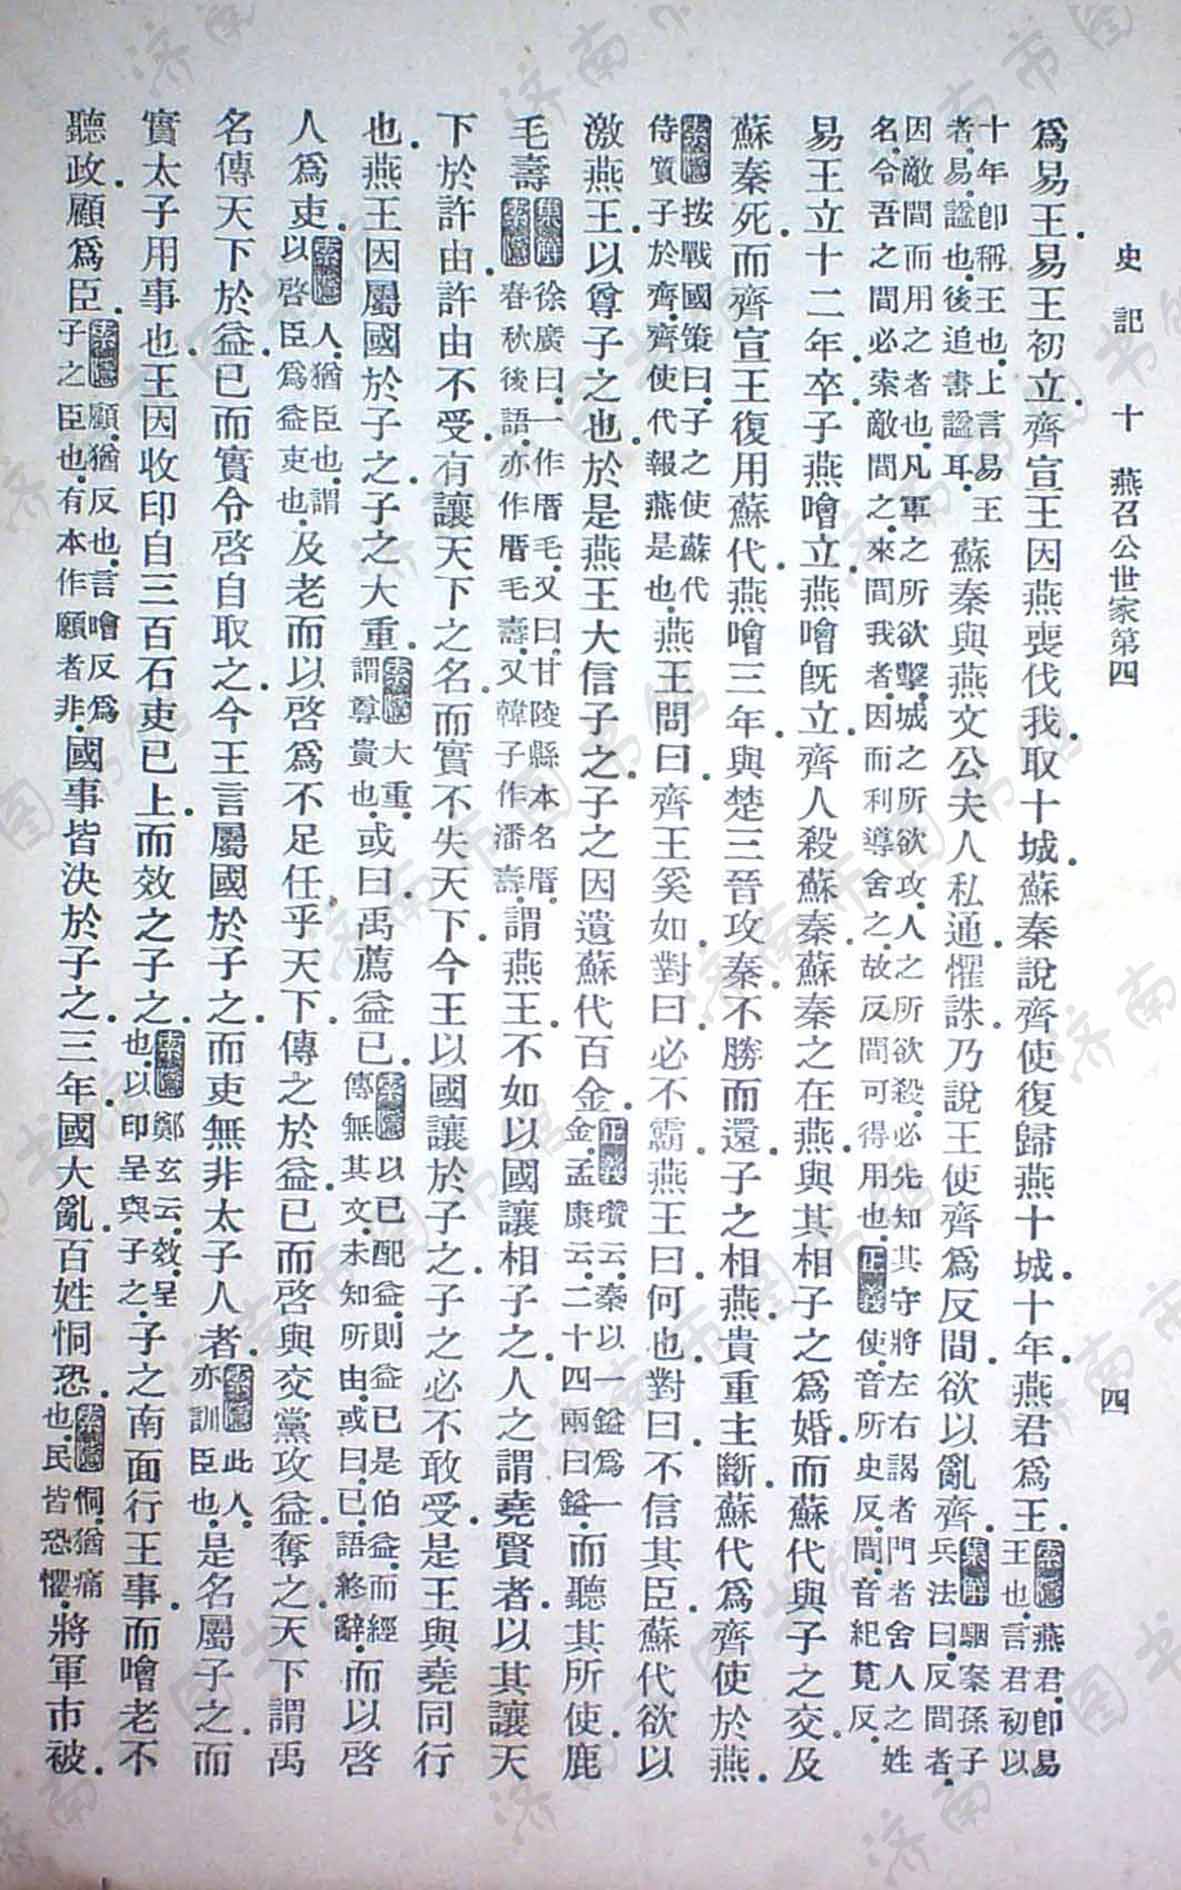 史記十　燕召公世家第四　四
爲易王.易王初立.齊宣王因燕喪伐我.取十城.蘇秦說齊使復歸燕十城.十年.燕君爲王.索隱燕君.卽易王也.言君初以
十年卽稱王也.上言易王者.易諡也.後追書諡耳.蘇秦與燕文公夫人私通.懼誅.乃說王使齊爲反間.欲以亂齊.集解駰案孫子兵法曰.反間者.
因敵間而用之者也.凡軍之所欲擊.城之所欲攻.人之所欲殺.必先知其守將左右謁者門者舍人之姓名.令吾之間必索敵間之.來間我者.因而利導舍之.故反間可得用也.正義使.音所史反.間.音紀莧反.
易王立十二年卒.子燕噲立.燕噲旣立.齊人殺蘇秦.蘇秦之在燕.與其相子之爲婚.而蘇代與子之交.及
蘇秦死.而齊宣王復用蘇代.燕噲三年.與楚三晉攻秦.不勝而還.子之相燕.貴重主斷.蘇代爲齊使於燕.
索隱按戰國策曰.子之使蘇代侍質子於齊.齊使代報燕是也.燕王問曰.齊王奚如.對曰.必不霸.燕王曰.何也.對曰.不信其臣.蘇代欲以
激燕王.以尊子之也.於是燕王大信子之.子之因遺蘇代百金.正義瓚云.秦以一鎰爲一金.孟康云.二十四兩曰鎰.而聽其所使.鹿
毛壽集解徐廣曰.一作厝毛.又曰.甘陵縣本名厝.索隱春秋後語.亦作厝毛壽.又韓子作潘壽.謂燕王.不如以國讓相子之.人之謂堯賢者.以其讓天
下於許由.許由不受.有讓天下之名.而實不失天下.今王以國讓於子之.子之必不敢受.是王與堯同行
也.燕王因屬國於子之.子之大重.索隱大重.謂尊貴也.或曰.禹薦益已.索隱以已配益.則益已是伯益.而經傳無其文.未知所由.或曰.已.語終辭.而以啓
人爲吏.索隱人.猶臣也.謂以啓臣爲益吏也.及老而以啓爲不足任乎天下.傳之於益.已而啓與交黨攻益.奪之.天下謂禹
名傳天下於益.已而實令啓自取之.今王言屬國於子之.而吏無非太子人者.索隱此人.亦訓臣也.是名屬子之.而
實太子用事也.王因收印自三百石吏已上.而效之子之.索隱鄭玄云.效.呈也.以印呈與子之.子之南面行王事.而噲老不
聽政.顧爲臣.索隱顧.猶反也.言噲反爲子之臣也.有本作願者非.國事皆決於子之.三年.國大亂.百姓恫恐.索隱恫.猶痛也.民皆恐懼.將軍市被.